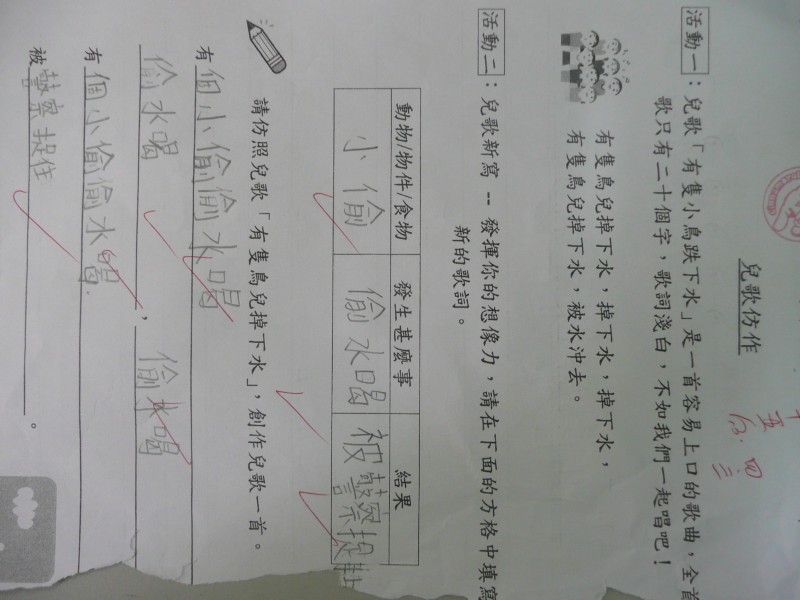 兒歌仿作
活動一：兒歌「有隻小鳥跌下水」是一首容易上口的歌曲，全首
歌只有二十個字，歌詞淺白，不如我們一起唱吧！
有隻鳥兒掉下水，掉下水，掉下水，
有隻鳥兒掉下水，被水沖去。
活動二：兒歌新寫 -- 發揮你的想像力，請在下面的方格中填寫
新的歌詞。
動物/物件/食物 發生甚麼事 結果
小偷 偷水喝 被警察捉
請仿照兒歌「有隻鳥兒掉下水」，創作兒歌一首。
有個小偷偷水喝
偷水喝，偷水喝
有個小偷偷水喝
被警察捉住。